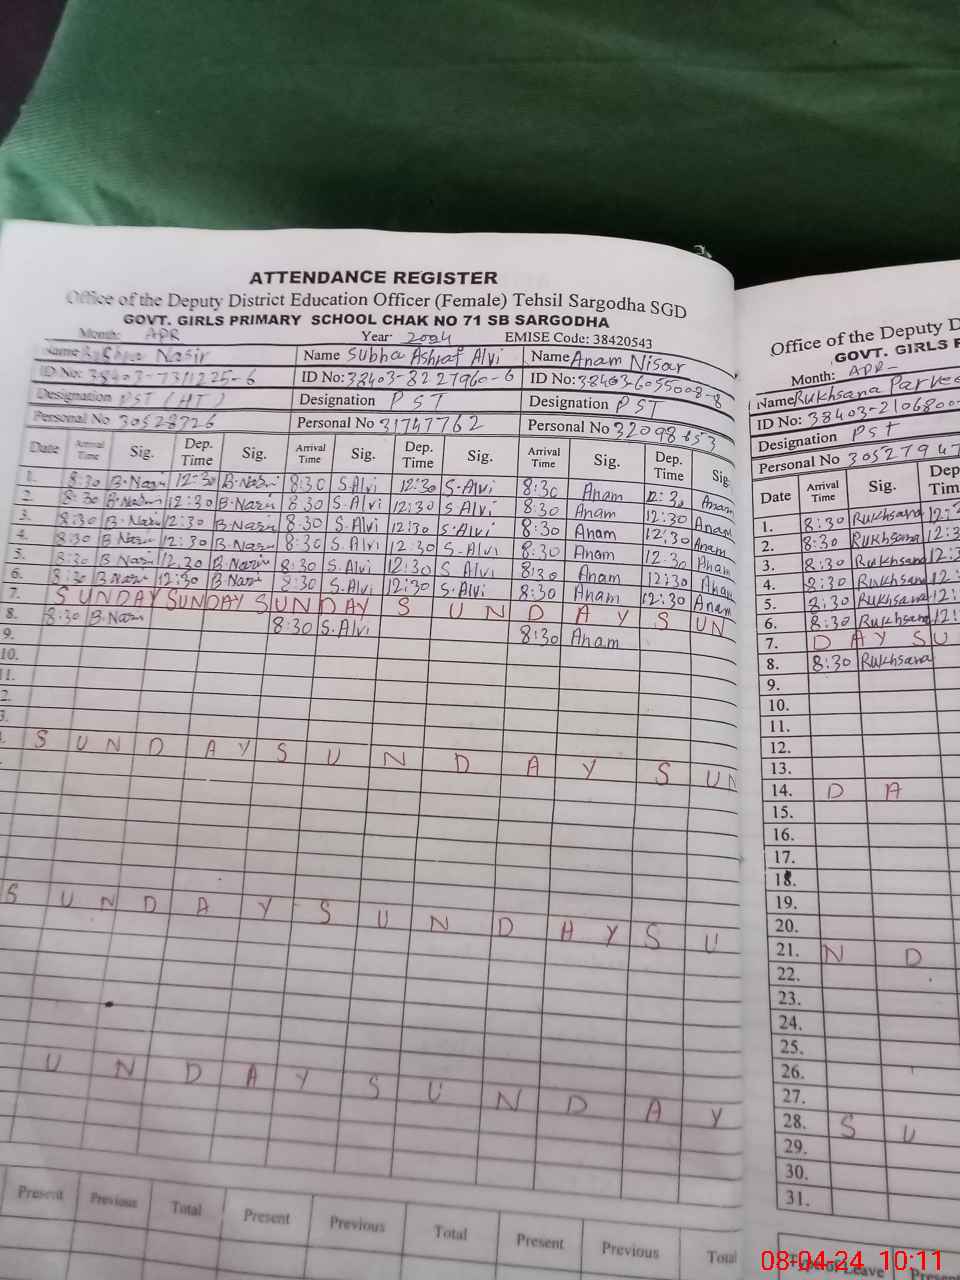 ATTENDANCE REGISTER
Office of the Deputy District Education Officer (Female) Tehsil Sargodha SGD
GOVT. GIRLS PRIMARY SCHOOL CHAK NO 71 SB SARGODHA
Month: APR Year 2024 EMISE Code: 38420543
Name Nasir Name Subha Ashraf Alvi Name Anam Nisar
ID No: 38403-7311225-6 ID No: 38403-8227960-6 ID No: 38403-6055008-8
Designation PST (HT) Designation PST Designation PST
Personal No 30528726 Personal No 31747762 Personal No 32098653
Date Arrival Time Sig. Dep. Time Sig. Arrival Time Sig. Dep. Time Sig. Arrival Time Sig. Dep. Time Sig.
1. 8:30 B.Nasir 12:30 B.Nasir 8:30 S.Alvi 12:30 S.Alvi 8:30 Anam 12:30 Anam
2. 8:30 B.Nasir 12:30 B.Nasir 8:30 S.Alvi 12:30 S.Alvi 8:30 Anam 12:30 Anam
3. 8:30 B.Nasir 12:30 B.Nasir 8:30 S.Alvi 12:30 S.Alvi 8:30 Anam 12:30 Anam
4. 8:30 B Nasir 12:30 B.Nasir 8:30 S.Alvi 12:30 S.Alvi 8:30 Anam 12:30 Anam
5. 8:30 B Nasir 12.30 B.Nasir 8:30 S.Alvi 12:30 S.Alvi 8:30 Anam 12:30 Anam
6. 8:30 B Nasir 12:30 B Nasir 8:30 S.Alvi 12:30 S.Alvi 8:30 Anam 12:30 Anam
7. SUNDAY SUNDAY SUNDAY SUNDAY SUN
8. 8:30 B.Nasir 8:30 S.Alvi 8:30 Anam
9.
10.
11.
2.
3.
SUNDAY SUNDAY SUN
SUNDAY SUNDAY SU
UNDAY SUNDAY
Present Previous Total Present Previous Total Present Previous Total
Office of the Deputy D
GOVT. GIRLS P
Month: APR
Name Rukhsana Parvee
ID No: 38403-2106800
Designation PST
Personal No 3052794
Date Arrival Time Sig. Dep Tim
1. 8:30 Rukhsana 12:3
2. 8:30 Rukhsana 12:3
3. 8:30 Rukhsana 12:3
4. 8:30 Rukhsana 12:
5. 8:30 Rukhsana 12:
6. 8:30 Rukhsana 12:
7. DAY SU
8. 8:30 Rukhsana
9.
10.
11.
12.
13.
14. D A
15.
16.
17.
18.
19.
20.
21. N D
22.
23.
24.
25.
26.
27.
28. S U
29.
30.
31.
Leave Present
08-04-24 10:11